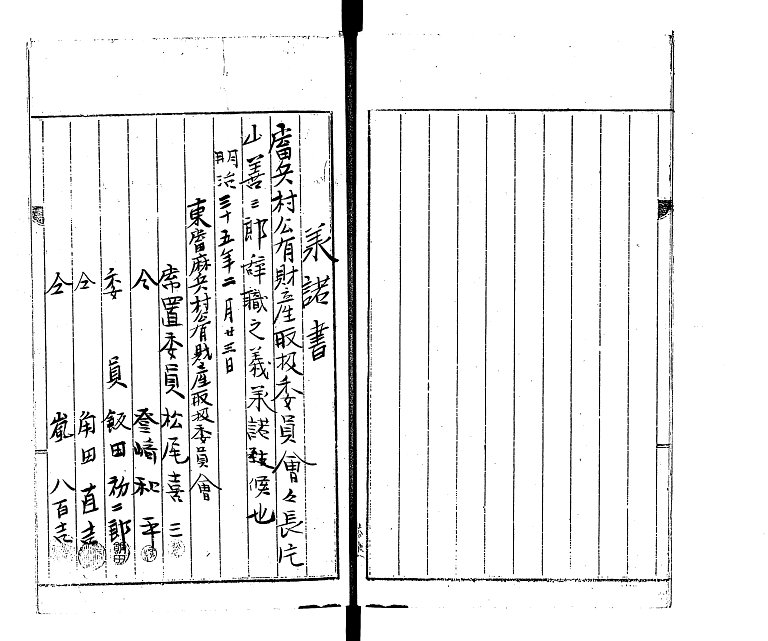 承諾書
當兵村公有財産取扱委員會々長片
山善三郎辞職之義承諾致候也
明治三十五年二月廿三日
東當麻兵村公有財産取扱委員會
常置委員 松尾喜三
仝 登﨑和平
委員 飯田初二郎
仝 角田直吉
仝 嵐八百吉